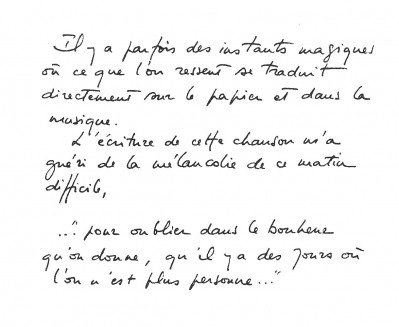 Il y a parfois des instants magiques
où ce que l'on ressent se traduit
directement sur le papier et dans la
musique.
L'écriture de cette chanson m'a
guéri de la mélancolie de ce matin
difficile,
..." pour oublier dans le bonheur
qu'on donne, qu'il y a des jours où
l'on n'est plus personne..."